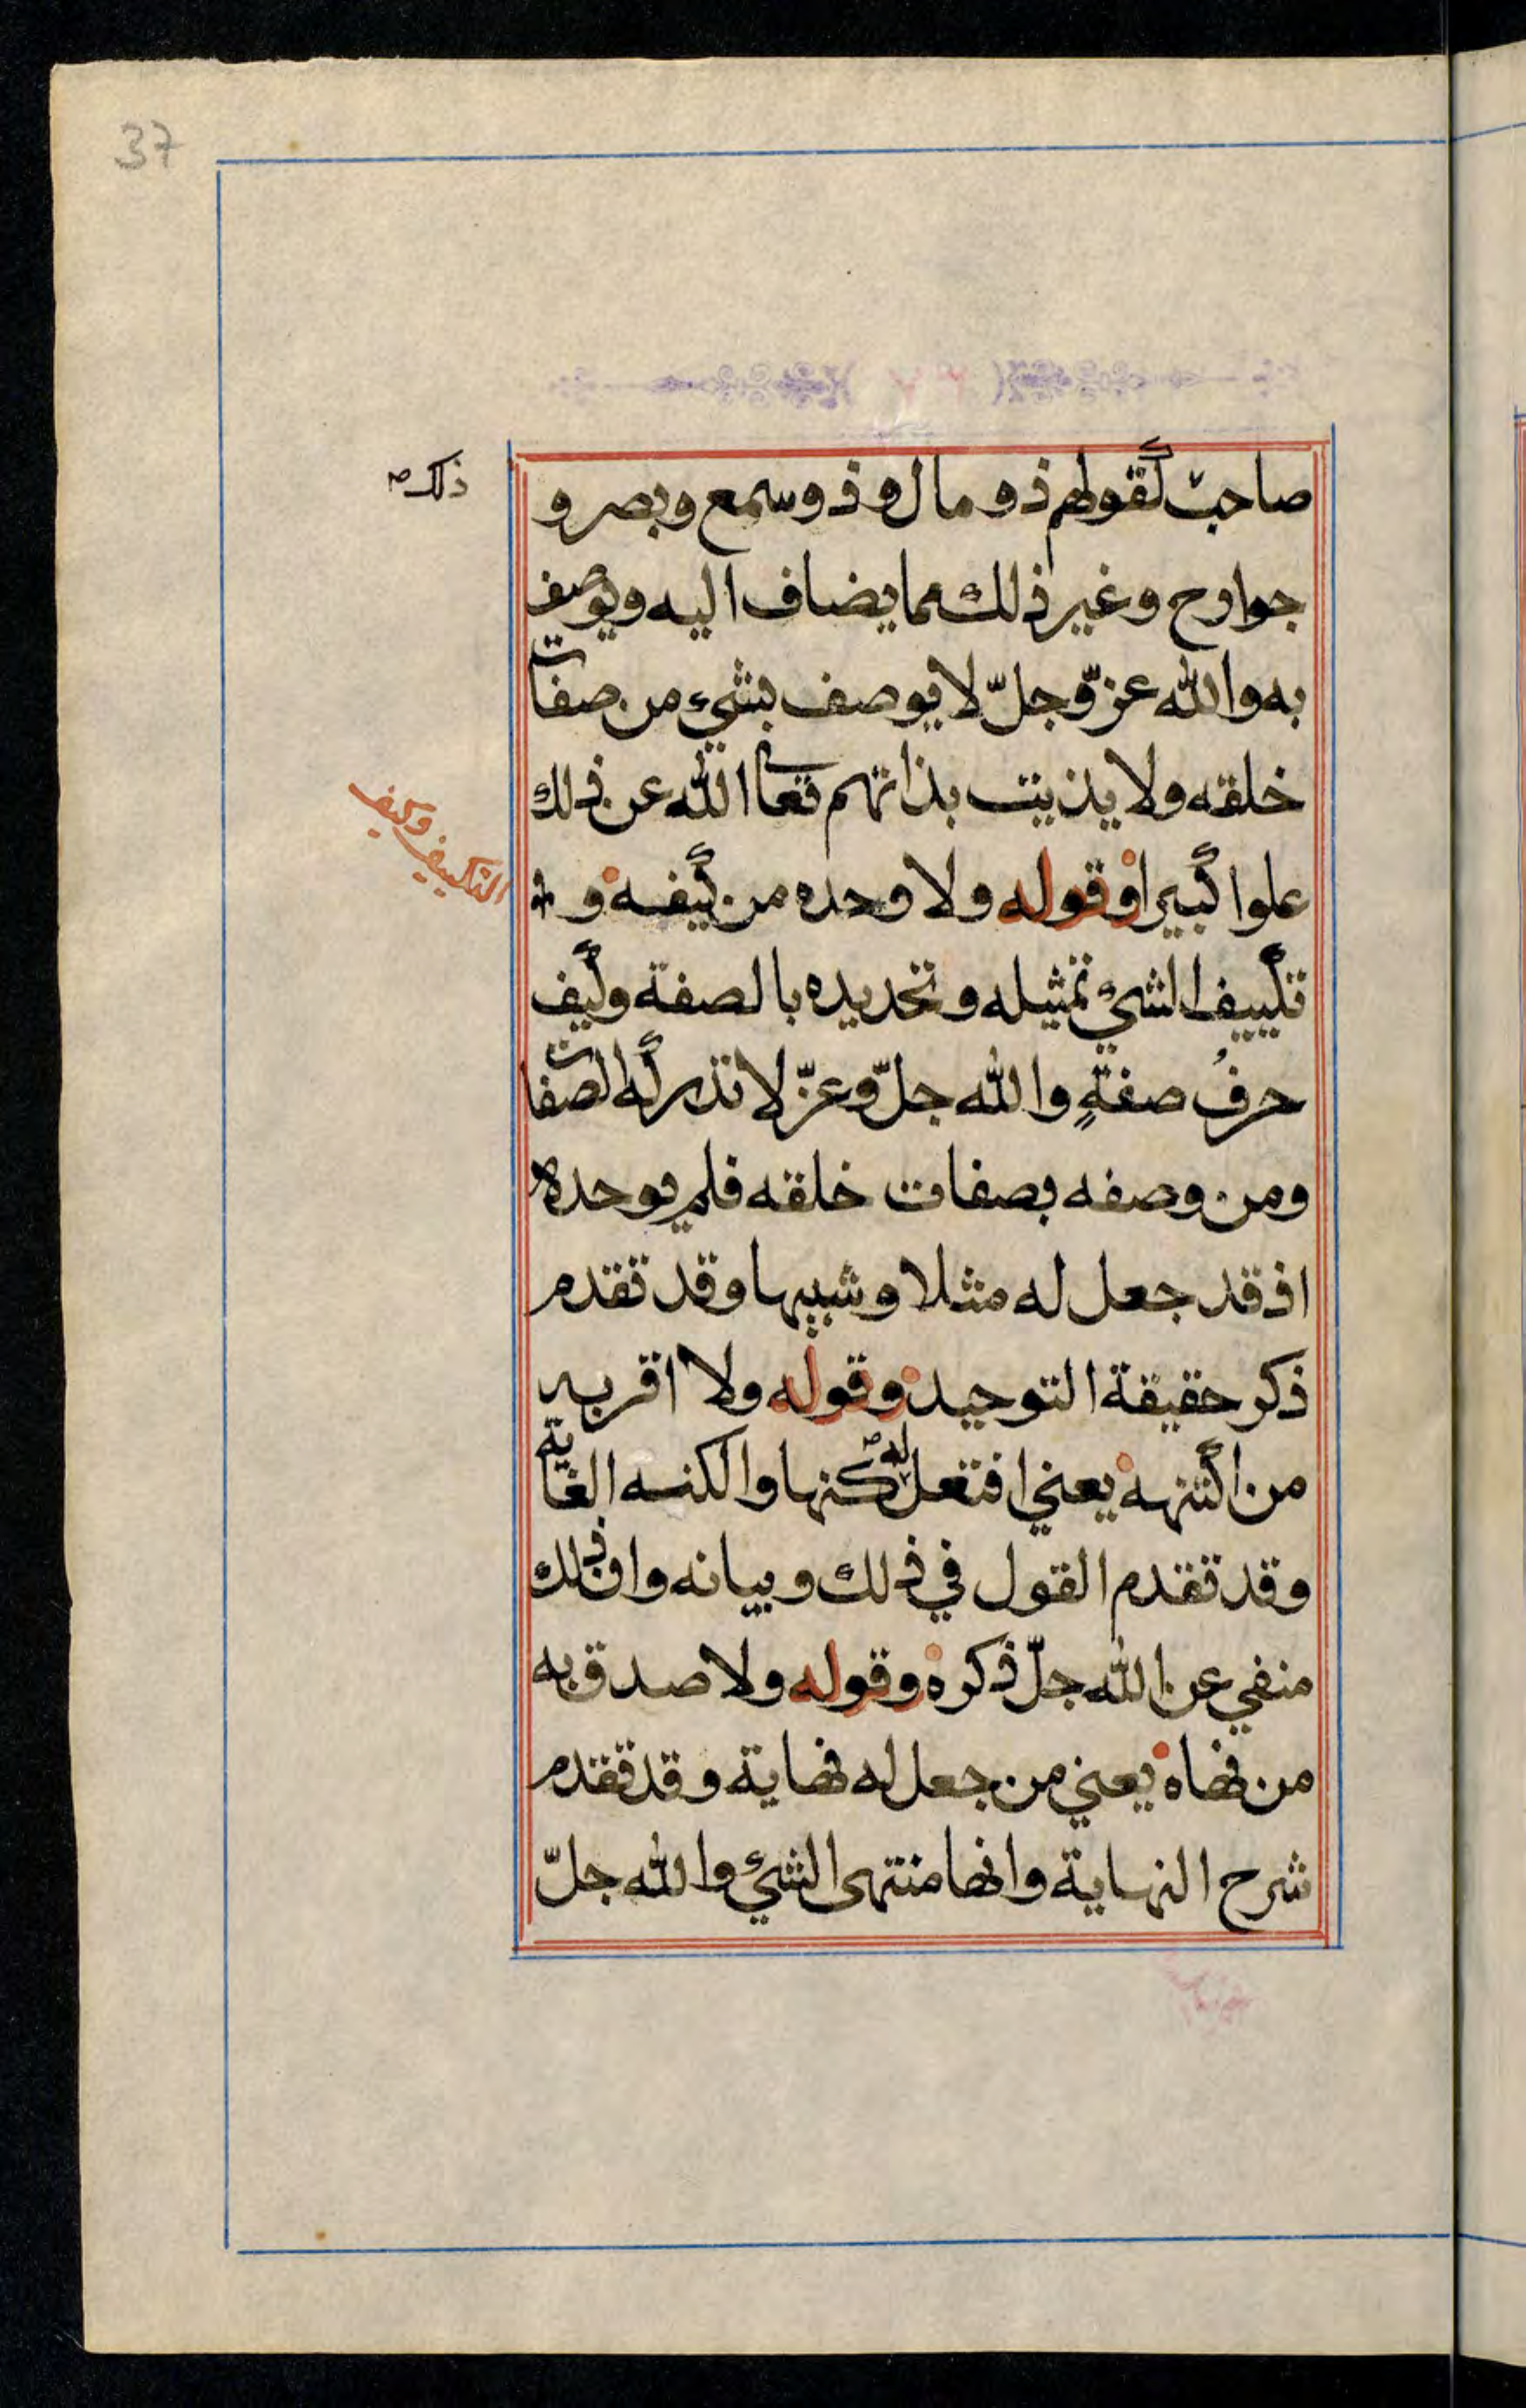 37
صاحب كقولهم ذو مال وذو سمع وبصر و
ذلك
جوارح وغير ذلك مما يضاف اليه ويوصف
به والله عزّ وجلّ لا يوصف بشيء من صفات
خلقه ولا يذيت بذاتهم فتعا الله عن ذلك
علوا كبيرا وقوله ولا وحده من كيفه و
التكييف وكيف
تكييف الشيء تمثيله وتحديده بالصفة وكيف
حرفُ صفةٍ والله جلّ وعزّ لا تدركه الصفات
ومن وصفه بصفات خلقه فلم يوحده
اذ قد جعل له مثلا وشبيها وقد تقدم
ذكر حقيقة التوحيد وقوله ولا اقر به
من اكتنهه يعني افتعل له كنها والكنه الغاية
وقد تقدم القول في ذلك وبيانه وان ذلك
منفي عن الله جلّ ذكره وقوله ولا صدق به
من نهاه يعني من جعل له نهاية وقد تقدم
شرح النهاية وانها منتهى الشيء والله جلّ